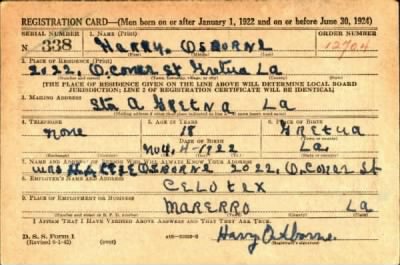 REGISTRATION CARD—(Men born on or after January 1, 1922 and on or before June 30, 1924)
SERIAL NUMBER 1. NAME (Print) ORDER NUMBER
N 338 HARRY OSBORNE 12704
2. PLACE OF RESIDENCE (Print)
2022, St Gretna La
(THE PLACE OF RESIDENCE GIVEN ON THE LINE ABOVE WILL DETERMINE LOCAL BOARD
JURISDICTION; LINE 2 OF REGISTRATION CERTIFICATE WILL BE IDENTICAL)
3. MAILING ADDRESS
Sta A GRETNA La
4. TELEPHONE 5. AGE IN YEARS 6. PLACE OF BIRTH
none 18 GRETNA
DATE OF BIRTH
4-1922 La.
7. NAME AND ADDRESS OF PERSON WHO WILL ALWAYS KNOW YOUR ADDRESS
OSBORNE 2022, St
8. EMPLOYER'S NAME AND ADDRESS
CELOTEX
9. PLACE OF EMPLOYMENT OR BUSINESS
MARERRO La
I AFFIRM THAT I HAVE VERIFIED ABOVE ANSWERS AND THAT THEY ARE TRUE.
D. S. S. Form 1
Harry Osborne